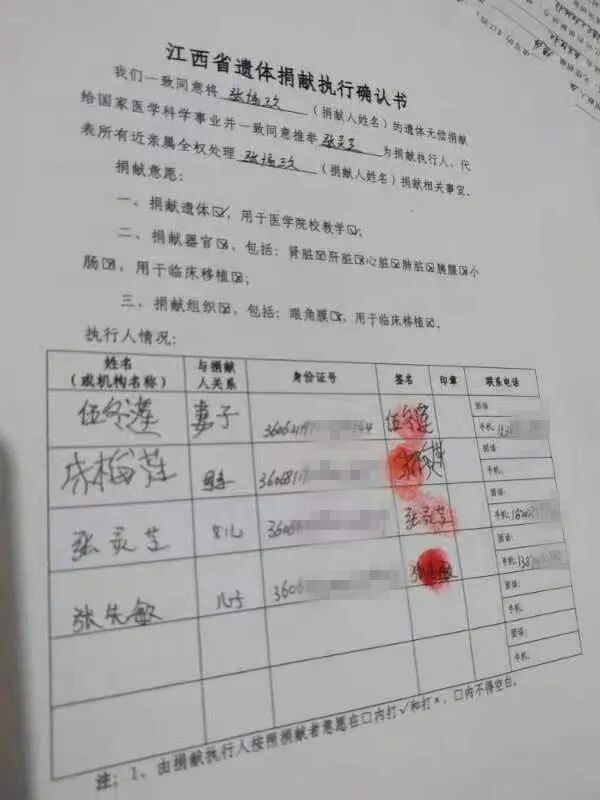 江西省遗体捐献执行确认书
我们一致同意将 张 （捐献人姓名）的遗体无偿捐献
给国家医学科学事业并一致同意推举 张灵芝 为捐献执行人，代
表所有近亲属全权处理 张 （捐献人姓名）捐献相关事宜。
捐献意愿：
一、捐献遗体☑，用于医学院校教学☑；
二、捐献器官☑，包括：肾脏☑肝脏☑心脏☑肺脏☑胰腺☑小
肠☑，用于临床移植☑；
三、捐献组织☑，包括：眼角膜☑，用于临床移植☑。
执行人情况：
姓名（或机构名称） 与捐献人关系 身份证号 签名 印章 联系电话
伍冬莲 妻子 伍冬莲 固话：
手机：
梅莲 固话：
手机：
张灵芝 女儿 张灵芝 固话：
手机：
张先敏 儿子 3606 张先敏 固话：
手机：
固话：
手机：
固话：
手机：
注：1、由捐献执行人按照捐献者意愿在口内打√和打×，口内不得空白。